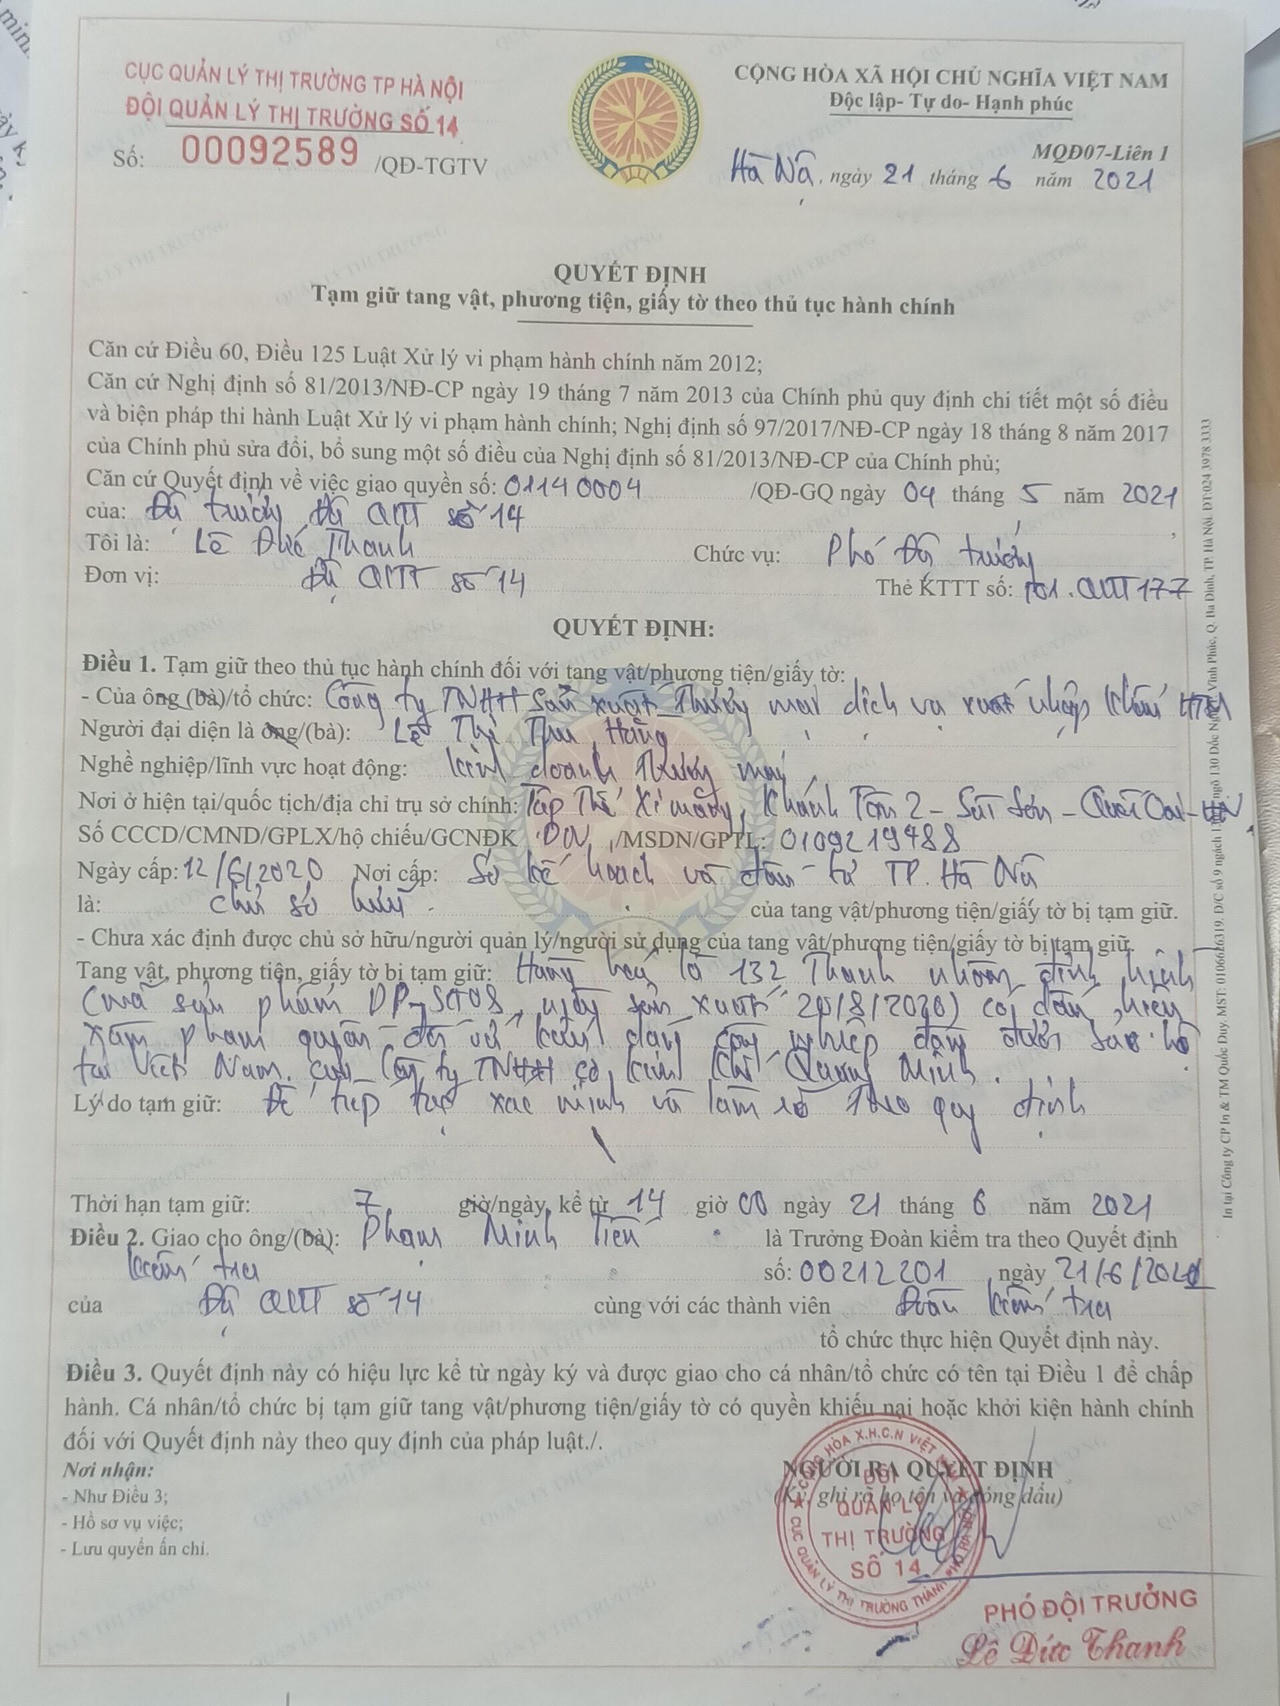 CỤC QUẢN LÝ THỊ TRƯỜNG TP HÀ NỘI
ĐỘI QUẢN LÝ THỊ TRƯỜNG SỐ 14
Số: 00092589 /QĐ-TGTV
CỘNG HÒA XÃ HỘI CHỦ NGHĨA VIỆT NAM
Độc lập- Tự do- Hạnh phúc
MQĐ07-Liên 1
Hà Nội, ngày 21 tháng 6 năm 2021
QUYẾT ĐỊNH
Tạm giữ tang vật, phương tiện, giấy tờ theo thủ tục hành chính
Căn cứ Điều 60, Điều 125 Luật Xử lý vi phạm hành chính năm 2012;
Căn cứ Nghị định số 81/2013/NĐ-CP ngày 19 tháng 7 năm 2013 của Chính phủ quy định chi tiết một số điều
và biện pháp thi hành Luật Xử lý vi phạm hành chính; Nghị định số 97/2017/NĐ-CP ngày 18 tháng 8 năm 2017
của Chính phủ sửa đổi, bổ sung một số điều của Nghị định số 81/2013/NĐ-CP của Chính phủ;
Căn cứ Quyết định về việc giao quyền số: 01140004 /QĐ-GQ ngày 04 tháng 5 năm 2021
của: Đội trưởng Đội QLTT số 14
Tôi là: Lê Đức Thanh Chức vụ: Phó Đội trưởng
Đơn vị: Đội QLTT số 14 Thẻ KTTT số: 101.QLTT177
QUYẾT ĐỊNH:
Điều 1. Tạm giữ theo thủ tục hành chính đối với tang vật/phương tiện/giấy tờ:
- Của ông (bà)/tổ chức: Công ty TNHH Sản xuất Thương mại dịch vụ xuất nhập khẩu HTH
Người đại diện là ông/(bà): Lê Thị Thu Hằng
Nghề nghiệp/lĩnh vực hoạt động: kinh doanh thương mại
Nơi ở hiện tại/quốc tịch/địa chỉ trụ sở chính: Tập Thể Xi măng, Khánh Tân 2 - Sài Sơn - Quốc Oai - HN
Số CCCD/CMND/GPLX/hộ chiếu/GCNĐK DN /MSDN/GPTL: 0109219488
Ngày cấp: 12/6/2020 Nơi cấp: Sở kế hoạch và đầu tư TP. Hà Nội
là: chủ sở hữu của tang vật/phương tiện/giấy tờ bị tạm giữ.
- Chưa xác định được chủ sở hữu/người quản lý/người sử dụng của tang vật/phương tiện/giấy tờ bị tạm giữ.
Tang vật, phương tiện, giấy tờ bị tạm giữ: Hàng hoá là 132 Thanh nhôm định hình
(mã sản phẩm DP-SH08, ngày sản xuất 20/8/2020) có dấu hiệu
xâm phạm quyền đối với kiểu dáng công nghiệp đang được bảo hộ
tại Việt Nam của Công ty TNHH cơ kim khí Quang Minh.
Lý do tạm giữ: Để tiếp tục xác minh và làm rõ theo quy định
Thời hạn tạm giữ: 7 giờ/ngày, kể từ 14 giờ 00 ngày 21 tháng 6 năm 2021
Điều 2. Giao cho ông/(bà): Phạm Minh Tiến là Trưởng Đoàn kiểm tra theo Quyết định
kiểm tra số: 00212201 ngày 21/6/2021
của Đội QLTT số 14 cùng với các thành viên Đoàn kiểm tra
tổ chức thực hiện Quyết định này.
Điều 3. Quyết định này có hiệu lực kể từ ngày ký và được giao cho cá nhân/tổ chức có tên tại Điều 1 để chấp
hành. Cá nhân/tổ chức bị tạm giữ tang vật/phương tiện/giấy tờ có quyền khiếu nại hoặc khởi kiện hành chính
đối với Quyết định này theo quy định của pháp luật./.
Nơi nhận:
- Như Điều 3;
- Hồ sơ vụ việc;
- Lưu quyển ấn chỉ.
NGƯỜI RA QUYẾT ĐỊNH
(Ký, ghi rõ họ tên và đóng dấu)
ĐỘI
QUẢN LÝ
THỊ TRƯỜNG
SỐ 14
PHÓ ĐỘI TRƯỞNG
Lê Đức Thanh